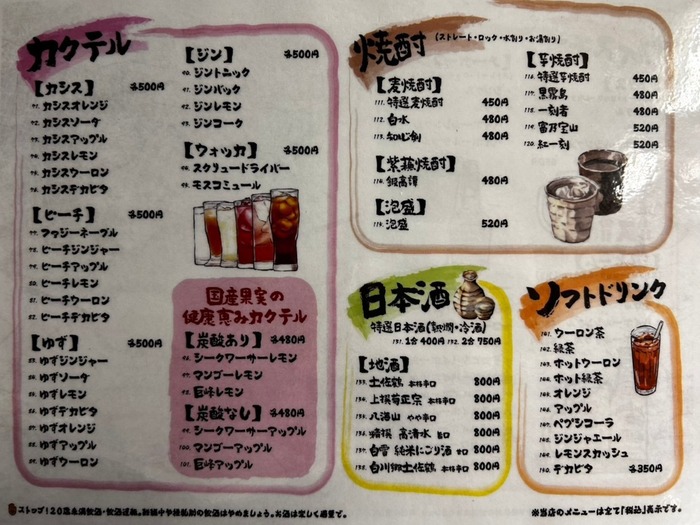 カクテル
【カシス】 各500円
71. カシスオレンジ
72. カシスソーダ
73. カシスアップル
74. カシスレモン
75. カシスウーロン
76. カシスデカビタ
【ピーチ】 各500円
77. ファジーネーブル
78. ピーチジンジャー
79. ピーチアップル
80. ピーチレモン
81. ピーチウーロン
82. ピーチデカビタ
【ゆず】 各500円
83. ゆずジンジャー
84. ゆずソーダ
85. ゆずレモン
86. ゆずデカビタ
87. ゆずオレンジ
88. ゆずアップル
89. ゆずウーロン
【ジン】 各500円
90. ジントニック
91. ジンバック
92. ジンレモン
93. ジンコーク
【ウォッカ】 各500円
スクリュードライバー
モスコミュール
国産果実の
健康恵みカクテル
【炭酸あり】各480円
シークワーサーレモン
マンゴーレモン
巨峰レモン
【炭酸なし】各480円
99. シークワーサーアップル
100. マンゴーアップル
101. 巨峰アップル
焼酎 (ストレート・ロック・水割り・お湯割り)
【麦焼酎】
111. 特選麦焼酎 450円
112. 白水 480円
113. 知心剣 480円
【紫蘇焼酎】
114. 鍛高譚 480円
【泡盛】
115. 泡盛 520円
【芋焼酎】
116. 特選芋焼酎 450円
117. 黒霧島 480円
118. 一刻者 480円
119. 富乃宝山 520円
120. 紅一刻 520円
日本酒
特選日本酒(熱燗・冷酒)
131. 1合 400円 132. 2合 750円
【地酒】
133. 土佐鶴 本格辛口 800円
134. 上撰菊正宗 本格辛口 800円
135. 八海山 やや辛口 800円
136. 精撰 高清水 旨口 800円
137. 白雪 純米にごり酒 甘口 800円
138. 白川郷土佐鶴 本格辛口 800円
ソフトドリンク
141. ウーロン茶
142. 緑茶
143. ホットウーロン
144. ホット緑茶
145. オレンジ
146. アップル
147. ペプシコーラ
148. ジンジャエール
149. レモンスカッシュ
150. デカビタ 各350円
ストップ!20歳未満飲酒・飲酒運転。妊娠中や授乳期の飲酒はやめましょう。お酒は楽しく適量で。
※当店のメニューは全て「税込」表示です。